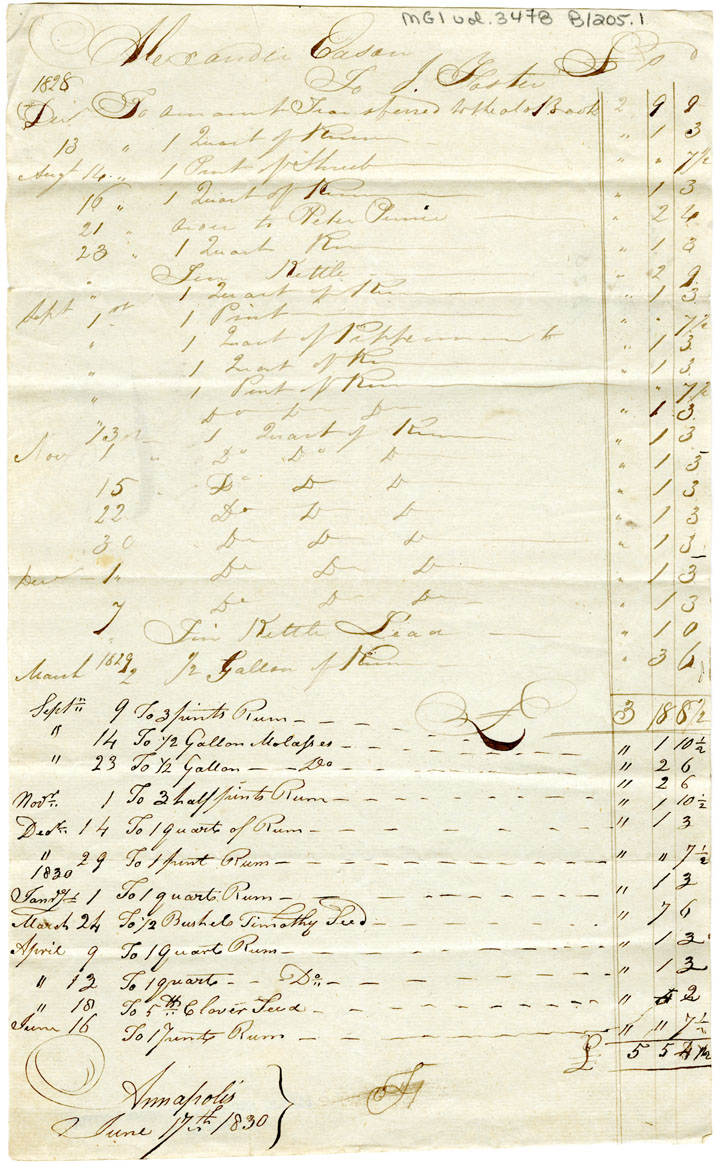 MG1 vol. 3478 B/205.1
Alexander Eason
1828 To J. Foster
To amount Transferred 2 9 9
13 " 1 Quart of Rum " 1 3
Augt 14 " 1 Pint of Shrub " " 7½
16 " 1 Quart of Rum " 1 3
21 " order to Peter " 2 4
23 " 1 Quart Rum " 1 3
" Tin Kettle " 2 9
Sept 1st 1 Quart of Rum " 1 3
" 1 Pint " " 7½
" 1 Quart of Peppermint " 1 3
" 1 Quart of Rum " 1 3
" 1 Pint of Rum " " 7½
Do Do Do " 1 3
13 1 Quart of Rum " 1 3
Nov 1 " Do Do Do " 1 3
15 Do Do Do " 1 3
22 Do Do Do " 1 3
30 Do Do Do " 1 3
Decr 1 " Do Do Do " 1 3
7 Do Do Do " 1 3
Tin Kettle Lead " 1 0
March 1829 ½ Gallon of Rum " 3 6
£ 3 18 8½
Septr 9 To 3 pints Rum " 1 10½
" 14 To ½ Gallon Molasses " 2 6
" 23 To ½ Gallon Do " 2 6
Novr 1 To 3 half pints Rum " 1 10½
Decr 14 To 1 quart of Rum " 1 3
" 29 To 1 pint Rum " " 7½
1830
Janry 1 To 1 quart Rum " 1 3
March 24 To ½ Bushel Timothy Seed " 7 6
April 9 To 1 quart Rum " 1 3
" 12 To 1 quart Do " 1 3
" 18 To 5 lb Clover Seed " 2
June 16 To 1 pints Rum " " 7½
£ 5 5 4½
Annapolis
June 17th 1830